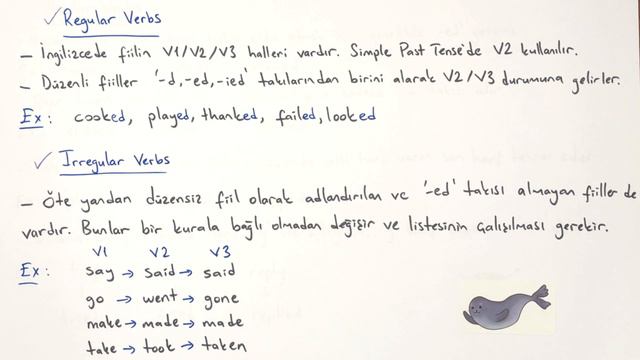 ✓ Regular Verbs
– İngilizcede fiilin V1/V2/V3 halleri vardır. Simple Past Tense'de V2 kullanılır.
– Düzenli fiiller '-d,-ed,-ied' takılarından birini alarak V2/V3 durumuna gelirler.
Ex: cooked, played, thanked, failed, looked
✓ Irregular Verbs
– Öte yandan düzensiz fiil olarak adlandırılan ve '-ed' takısı almayan fiiller de
vardır. Bunlar bir kurala bağlı olmadan değişir ve listesinin çalışılması gerekir.
V1 V2 V3
Ex: say → said → said
go → went → gone
make → made → made
take → took → taken